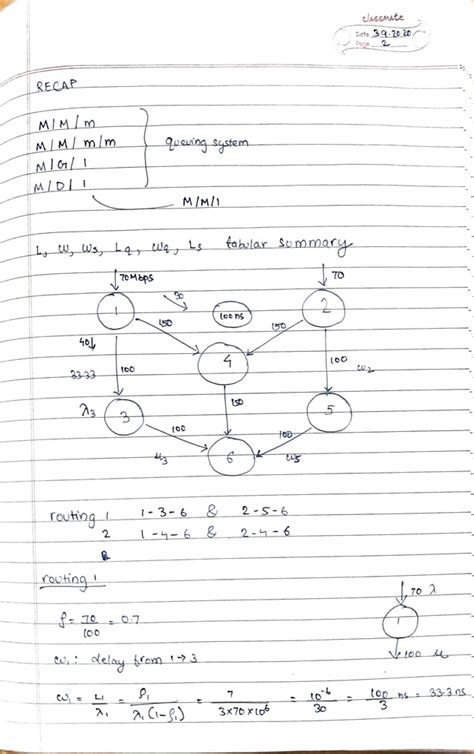 classmate
Date 3.9.2020
Page 2
RECAP
M/M/m
M/M/m/m
M/G/1
M/D/1
queuing system
M/M/1
L, W, Ws, Lq, Wq, Ls tabular summary
70Mbps
70
30
1
100 ns
2
150
150
40
4
33.33
100
100
ω2
150
λ3
3
5
100
100
μ3
6
ω5
routing 1 1-3-6 & 2-5-6
2 1-4-6 & 2-4-6
routing 1
70 λ
ρ = 70/100 = 0.7
1
100 μ
ω1: delay from 1→3
ω1 = L1/λ1 = ρ1/λ1(1-ρ1) = 7/3×70×10^6 = 10^-6/30 = 100/3 ns = 33.3 ns